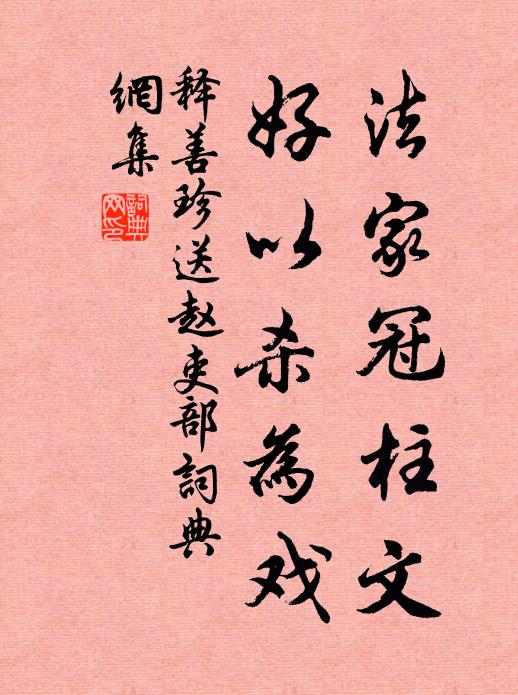 法家冠柱文
好以杀為戏
释善珍送赵吏部詞典
網集
詞典
网印